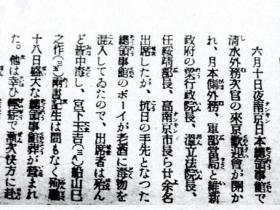 六月十日夜南京日本總領事館で
清水外務次官の來京歡迎會が開か
れ、日本側外務、軍部當局と維新
政府の梁行政院長、溫立法院長、
任綏靖部長、高南京市長ら廿余名
出席したが、抗日の手先となつた
總領事館のボーイが老酒に毒物を
混入してゐたので、出席者は殆ん
ど皆中毒し、宮下玉吉(三八)船山巳
之作(三五)兩書記生は間もなく殉職
十八日盛大な總領事館葬が營まれ
た。他は輕症で漸次快方に赴